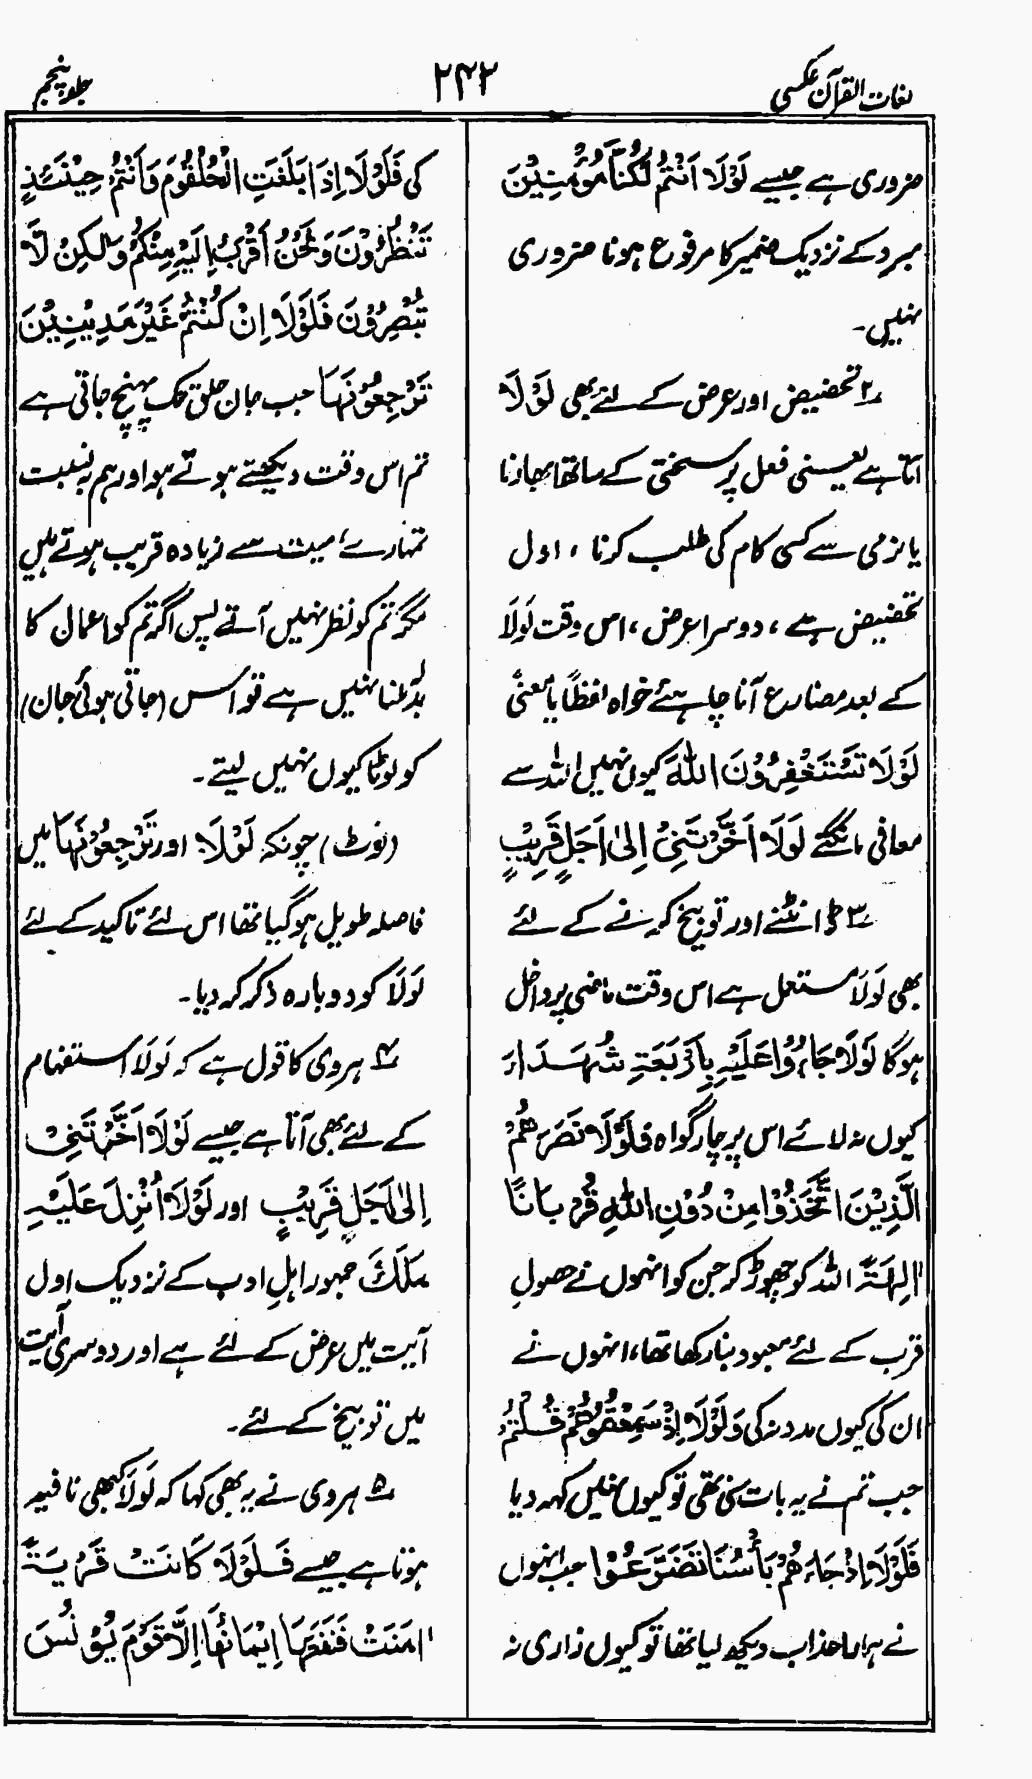 لغات القرآن عکسی
۲۴۲
جلد پنجم
ضروری ہے جیسے لَوْلَا اَنْتُمْ لَكُنَّا مُؤْمِنِيْنَ
مبرد کے نزدیک ضمیر کا مرفوع ہونا ضروری
نہیں۔
۲ تحضیض اور عرض کے لئے بھی لَوْلَا
آتا ہے یعنی فعل پر سختی کے ساتھ ابھارنا
یا نرمی سے کسی کام کی طلب کرنا ، اول
تحضیض ہے ، دوسرا عرض ، اس وقت لَوْلَا
کے بعد مضارع آنا چاہئے خواہ لفظًا یا معنًی
لَوْلَا تَسْتَغْفِرُوْنَ اللّٰهَ کیوں نہیں اللہ سے
معافی مانگتے لَوْلَا اَخَّرْتَنِيْ اِلٰى اَجَلٍ قَرِيْبٍ
۳ ڈانٹنے اور توبیخ کرنے کے لئے
بھی لَوْلَا مستعمل ہے اس وقت ماضی پر داخل
ہوگا لَوْلَا جَاءُوْا عَلَيْهِ بِاَرْبَعَةِ شُهَدَاءَ
کیوں نہ لائے اس پر چار گواہ فَلَوْلَا نَصَرَهُمْ
الَّذِيْنَ اتَّخَذُوْا مِنْ دُوْنِ اللّٰهِ قُرْبَانًا
اٰلِهَةً اللہ کو چھوڑ کر جن کو انہوں نے حصولِ
قرب کے لئے معبود بنا رکھا تھا، انہوں نے
ان کی کیوں مدد نہ کی وَلَوْلَا اِذْ سَمِعْتُمُوْهُ قُلْتُمْ
جب تم نے یہ بات سنی تھی تو کیوں نہیں کہہ دیا
فَلَوْلَا اِذْ جَاءَهُمْ بَأْسُنَا تَضَرَّعُوْا جب انہوں
نے ہمارا عذاب دیکھ لیا تھا تو کیوں زاری نہ
کی فَلَوْلَا اِذَا بَلَغَتِ الْحُلْقُوْمَ وَاَنْتُمْ حِيْنَئِذٍ
تَنْظُرُوْنَ وَنَحْنُ اَقْرَبُ اِلَيْهِ مِنْكُمْ وَلٰكِنْ لَّا
تُبْصِرُوْنَ فَلَوْلَا اِنْ كُنْتُمْ غَيْرَ مَدِيْنِيْنَ
تَرْجِعُوْنَهَا جب جان حلق تک پہنچ جاتی ہے
تم اس وقت دیکھتے ہوتے ہو اور ہم بہ نسبت
تمہارے، میت سے زیادہ قریب ہوتے ہیں
مگر تم کو نظر نہیں آتے پس اگر تم کو اعمال کا
بدلہ ملنا نہیں ہے تو اس (جاتی ہوئی جان)
کو لوٹا کیوں نہیں لیتے ۔
(نوٹ) چونکہ لَوْلَا اور تَرْجِعُوْنَهَا میں
فاصلہ طویل ہو گیا تھا اس لئے تاکید کے لئے
لَوْلَا کو دوبارہ ذکر کر دیا۔
۴ ہروی کا قول ہے کہ لَوْلَا استفہام
کے لئے بھی آتا ہے جیسے لَوْلَا اَخَّرْتَنِيْ
اِلٰى اَجَلٍ قَرِيْبٍ اور لَوْلَا اُنْزِلَ عَلَيْهِ
مَلَكٌ جمہور اہل ادب کے نزدیک اول
آیت میں عرض کے لئے ہے اور دوسری آیت
میں توبیخ کے لئے۔
۵ ہروی نے یہ بھی کہا کہ لَوْلَا کبھی نافیہ
ہوتا ہے جیسے فَلَوْلَا كَانَتْ قَرْيَةٌ
اٰمَنَتْ فَنَفَعَهَا اِيْمَانُهَا اِلَّا قَوْمَ يُوْنُسَ